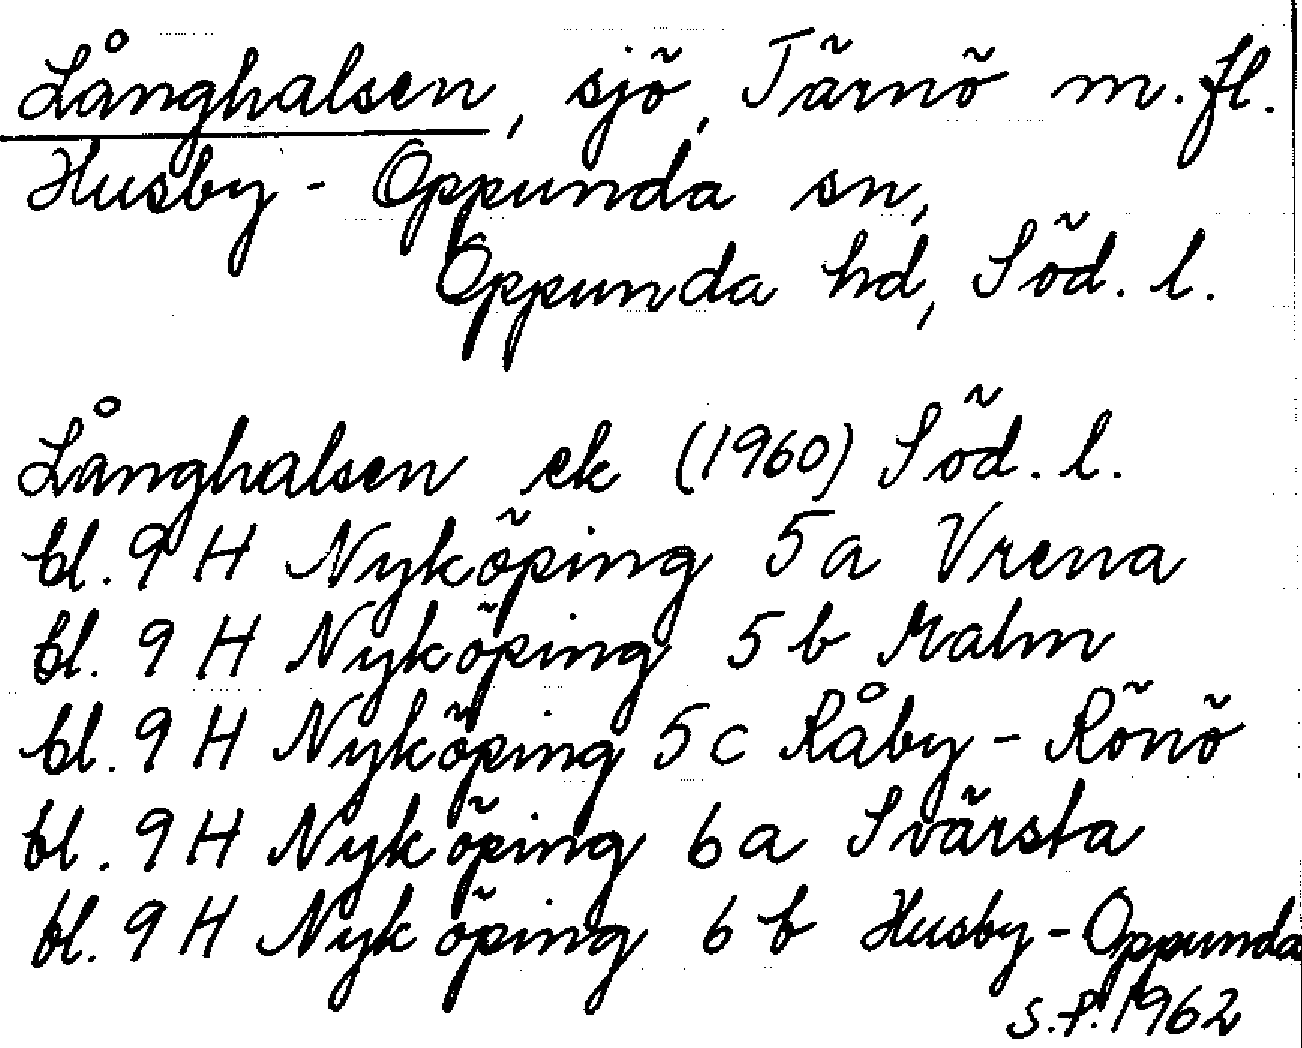 Långhalsen, sjö, Tärnö m. fl.
Husby - Oppunda sn,
Oppunda hd, Söd. l.
Långhalsen ek (1960) Söd. l.
bl. 9 H Nyköping 5 a Vrena
bl. 9 H Nyköping 5 b Malm
bl. 9 H Nyköping 5 c Råby - Rönö
bl. 9 H Nyköping 6 a Svärsta
bl. 9 H Nyköping 6 b Husby - Oppunda
S.P. 1962